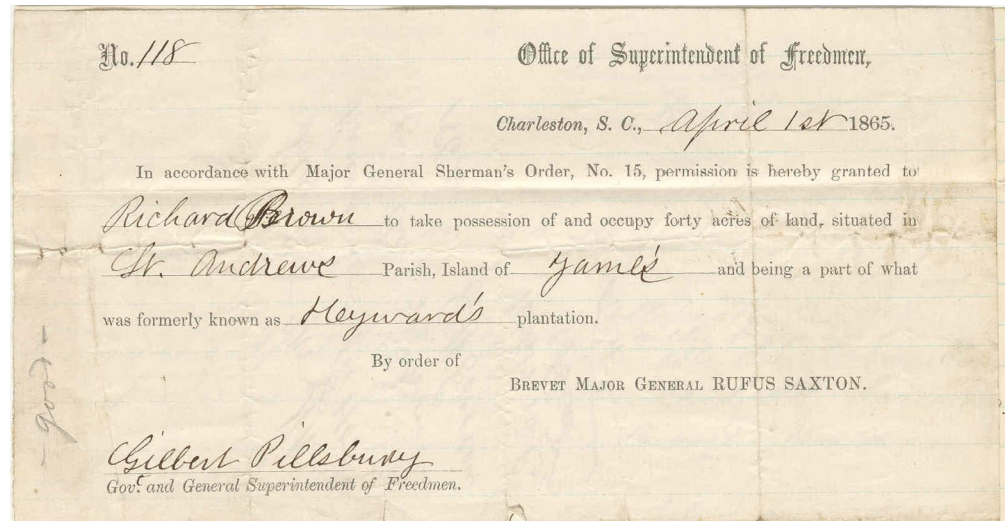 No. 118 Office of Superintendent of Freedmen,
Charleston, S. C., April 1st 1865.
In accordance with Major General Sherman's Order, No. 15, permission is hereby granted to
Richard Brown to take possession of and occupy forty acres of land, situated in
St. Andrews Parish, Island of James and being a part of what
was formerly known as Heyward's plantation.
By order of
BREVET MAJOR GENERAL RUFUS SAXTON.
Gilbert Pillsbury
Gov.t and General Superintendent of Freedmen.
- good -